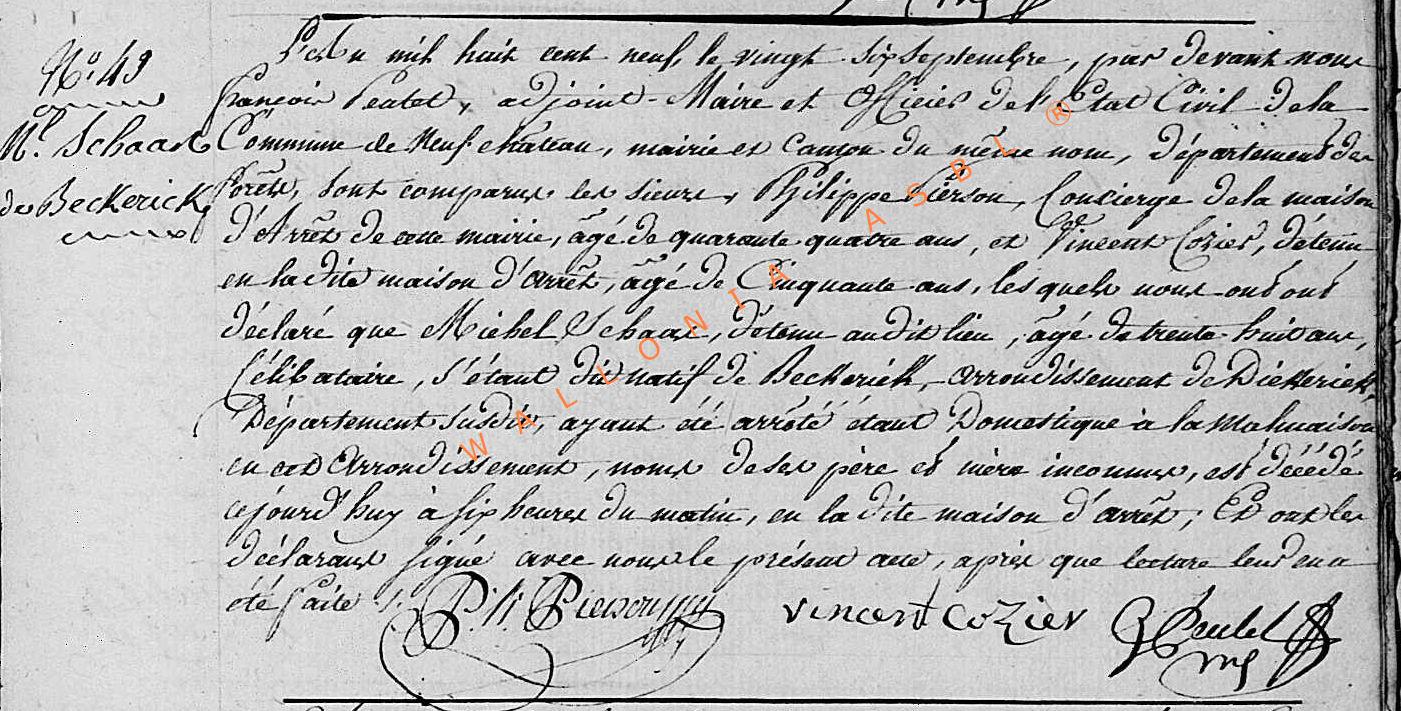 N.º 49
M.l Schaack
de Beckerick
L'an mil huit cent neuf, le vingt six Septembre, par devant nous
françois Peutet, adjoint-Maire et Officier de l'Etat Civil de la
Commune de Neufchateau, mairie et Canton du même nom, département des
forêts, sont comparus les sieurs, Philippe Pierson, Concierge de la maison
d'Arrêt de cette mairie, âgé de quarante quatre ans, et Vincent Cozier, détenu
en la dite maison d'arrêt, âgé de Cinquante ans, lesquels nous ont
déclaré que Michel Schaack, détenu audit lieu, âgé de trente huit ans,
Célibataire, s'étant dit natif de Beckerick, arrondissement de Diekerick,
Département susdit, ayant été arrêté étant Domestique à la Malmaison
en cet Arrondissement, noms de ses père et mère inconnus, est décédé
cejourd'huy à six heures du matin, en la dite maison d'arrêt; Et ont les
déclarans signé avec nous le présent acte, après que lecture leur en a
été faite.
P. h. Pierson Vincent Cozier Peutet
WALLONIA ASBL ®